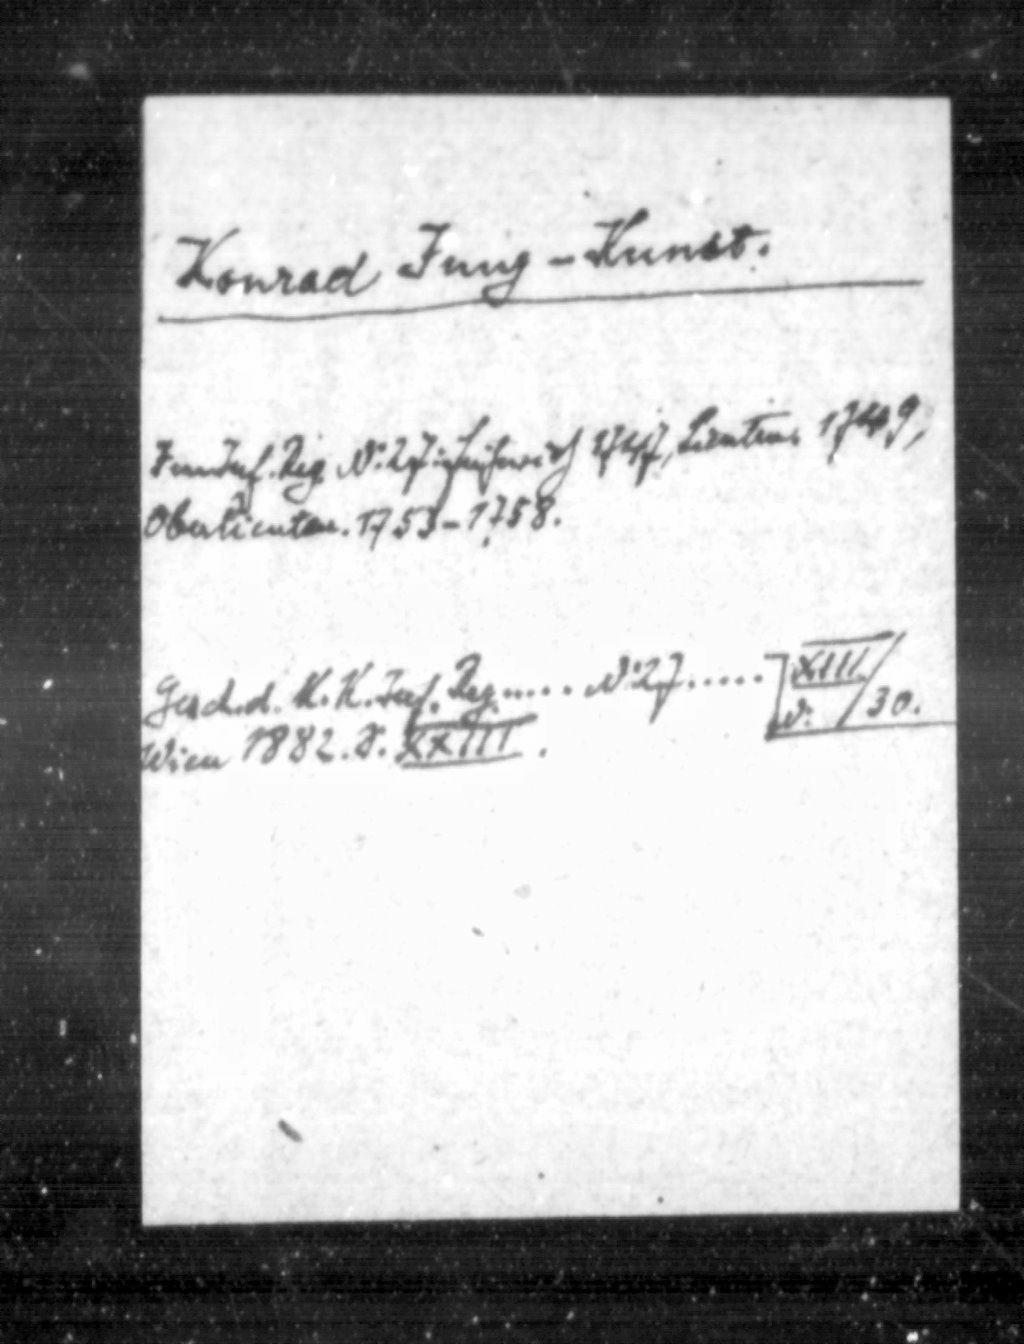 Konrad Jung-Kunst.
Inf. Reg. N: 27: Fähnrich 1747, Lieuten. 1749,
Oberlieuten. 1753-1758.
Gesch. d. K. K. Inf. Reg..... N: 27..... XIII.
Wien 1882. S. XXIII. N: /30.